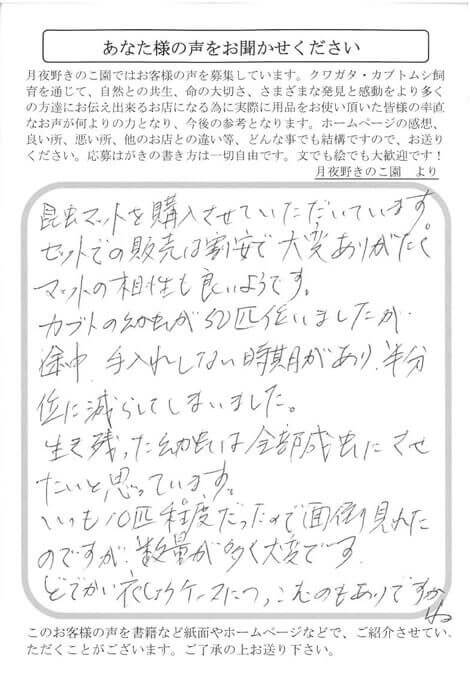 あなた様の声をお聞かせください
月夜野きのこ園ではお客様の声を募集しています。クワガタ・カブトムシ飼
育を通じて、自然との共生、命の大切さ、さまざまな発見と感動をより多く
の方達にお伝え出来るお店になる為に実際に用品をお使い頂いた皆様の率直
なお声が何よりの力となり、今後の参考となります。ホームページの感想、
良い所、悪い所、他のお店との違い等、どんな事でも結構ですので、お送り
ください。応募はがきの書き方は一切自由です。文でも絵でも大歓迎です！
月夜野きのこ園　より
昆虫マットを購入させていただいています。
セットでの販売は割安で大変ありがたく
マットの相性も良いようです。
カブトの幼虫が50匹位いましたが、
途中、手入れしない時期があり、半分
位に減らしてしまいました。
生き残った幼虫は全部成虫にさせ
たいと思っています。
いつも10匹程度だったので面倒見れた
のですが、数量が多く大変です。
どでかい衣しょうケースにつっこむのもありですかね
このお客様の声を書籍など紙面やホームページなどで、ご紹介させてい
ただくことがございます。ご了承の上お送り下さい。